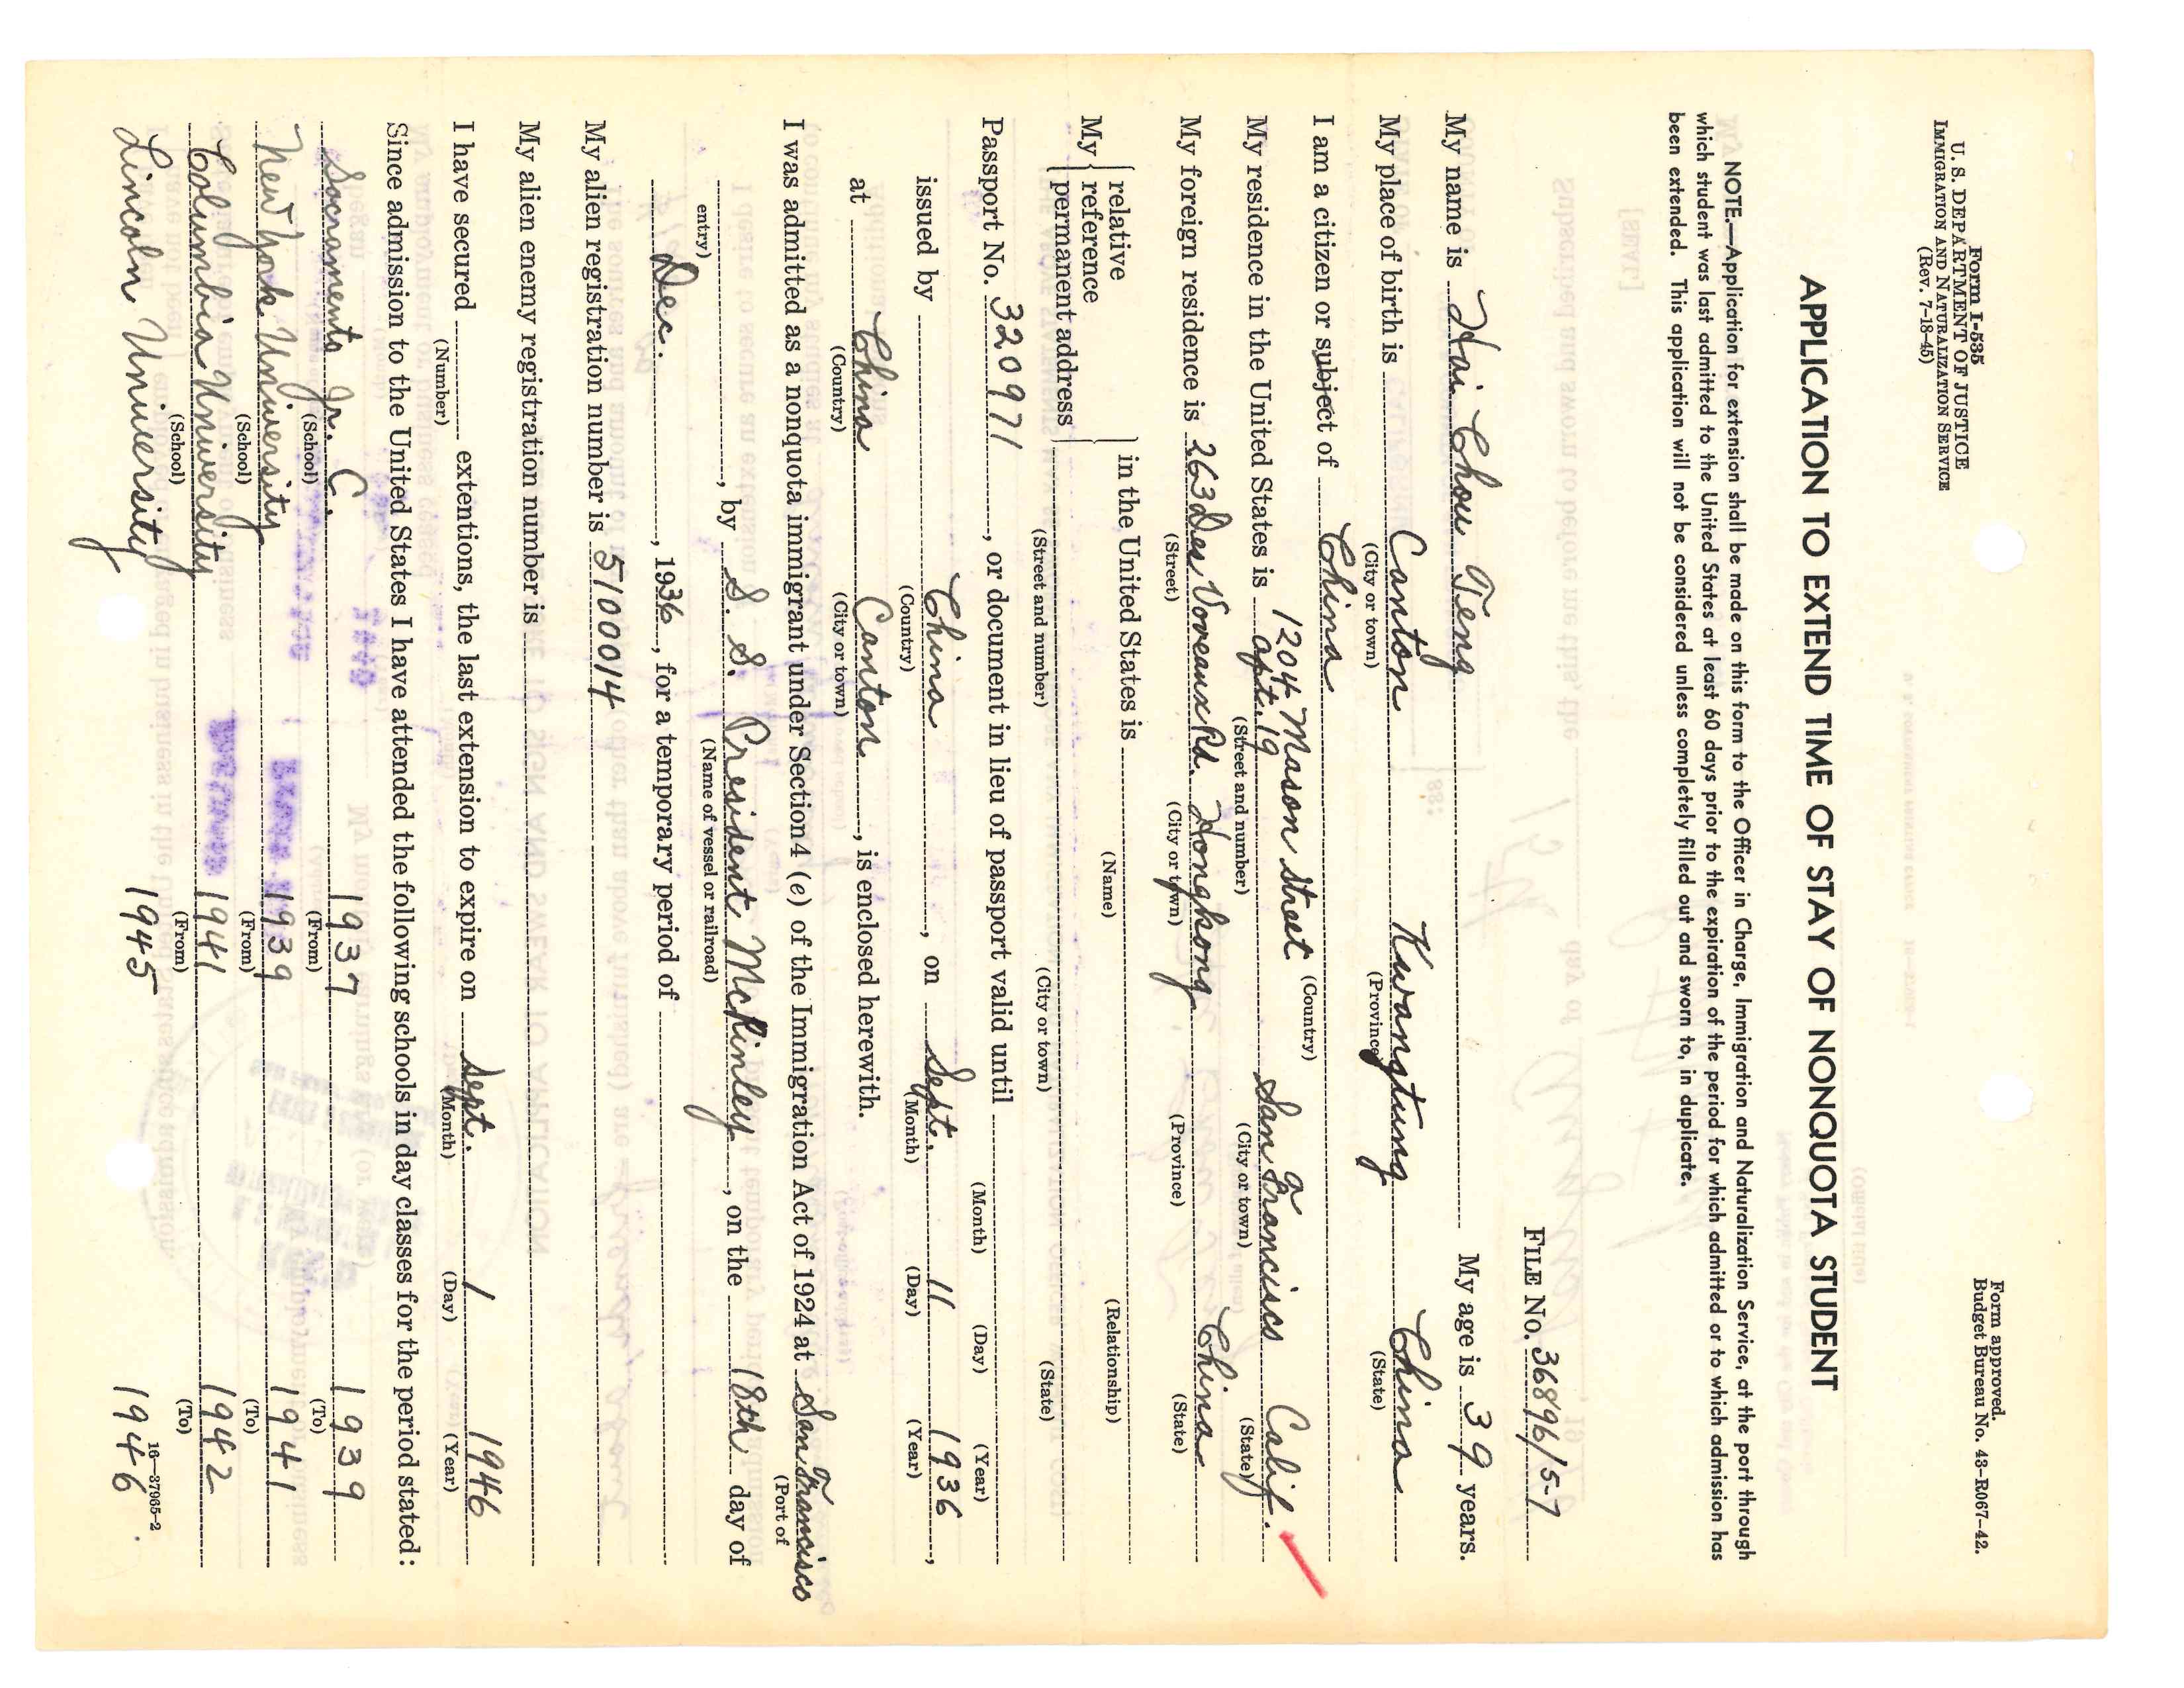 Form I-535
U. S. DEPARTMENT OF JUSTICE
IMMIGRATION AND NATURALIZATION SERVICE
(Rev. 7-18-45)
Form approved.
Budget Bureau No. 43-R067-42.
APPLICATION TO EXTEND TIME OF STAY OF NONQUOTA STUDENT
NOTE.—Application for extension shall be made on this form to the Officer in Charge, Immigration and Naturalization Service, at the port through
which student was last admitted to the United States at least 60 days prior to the expiration of the period for which admitted or to which admission has
been extended. This application will not be considered unless completely filled out and sworn to, in duplicate.
FILE NO. 36896/5-7
My name is Hai Chou Teng My age is 39 years.
My place of birth is Canton Kwangtung China
(City or town) (Province) (State)
I am a citizen or subject of China
(Country)
1204 Mason Street
My residence in the United States is apt. 19 San Francisco Calif.
(Street and number) (City or town) (State)
My foreign residence is 263 Des Voveaux Rd. Hongkong China
(Street) (City or town) (Province) (State)
My { relative reference permanent address } in the United States is
(Name) (Relationship)
(Street and number) (City or town) (State)
Passport No. 320971, or document in lieu of passport valid until
(Month) (Day) (Year)
issued by China, on Sept. 11 1936,
(Country) (Month) (Day) (Year)
at China Canton, is enclosed herewith.
(Country) (City or town)
I was admitted as a nonquota immigrant under Section 4 (e) of the Immigration Act of 1924 at San Francisco
(Port of
, by S. S. President McKinley, on the 18th day of
entry) (Name of vessel or railroad)
Dec., 1936, for a temporary period of
My alien registration number is 5100014
My alien enemy registration number is
I have secured extentions, the last extension to expire on Sept. 1 1946
(Number) (Month) (Day) (Year)
Since admission to the United States I have attended the following schools in day classes for the period stated:
Sacramento Jr. C. 1937 1939
(School) (From) (To)
New York University 1939 1941
(School) (From) (To)
Columbia University 1941 1942
(School) (From) (To)
16—37965-2
Lincoln University 1945 1946